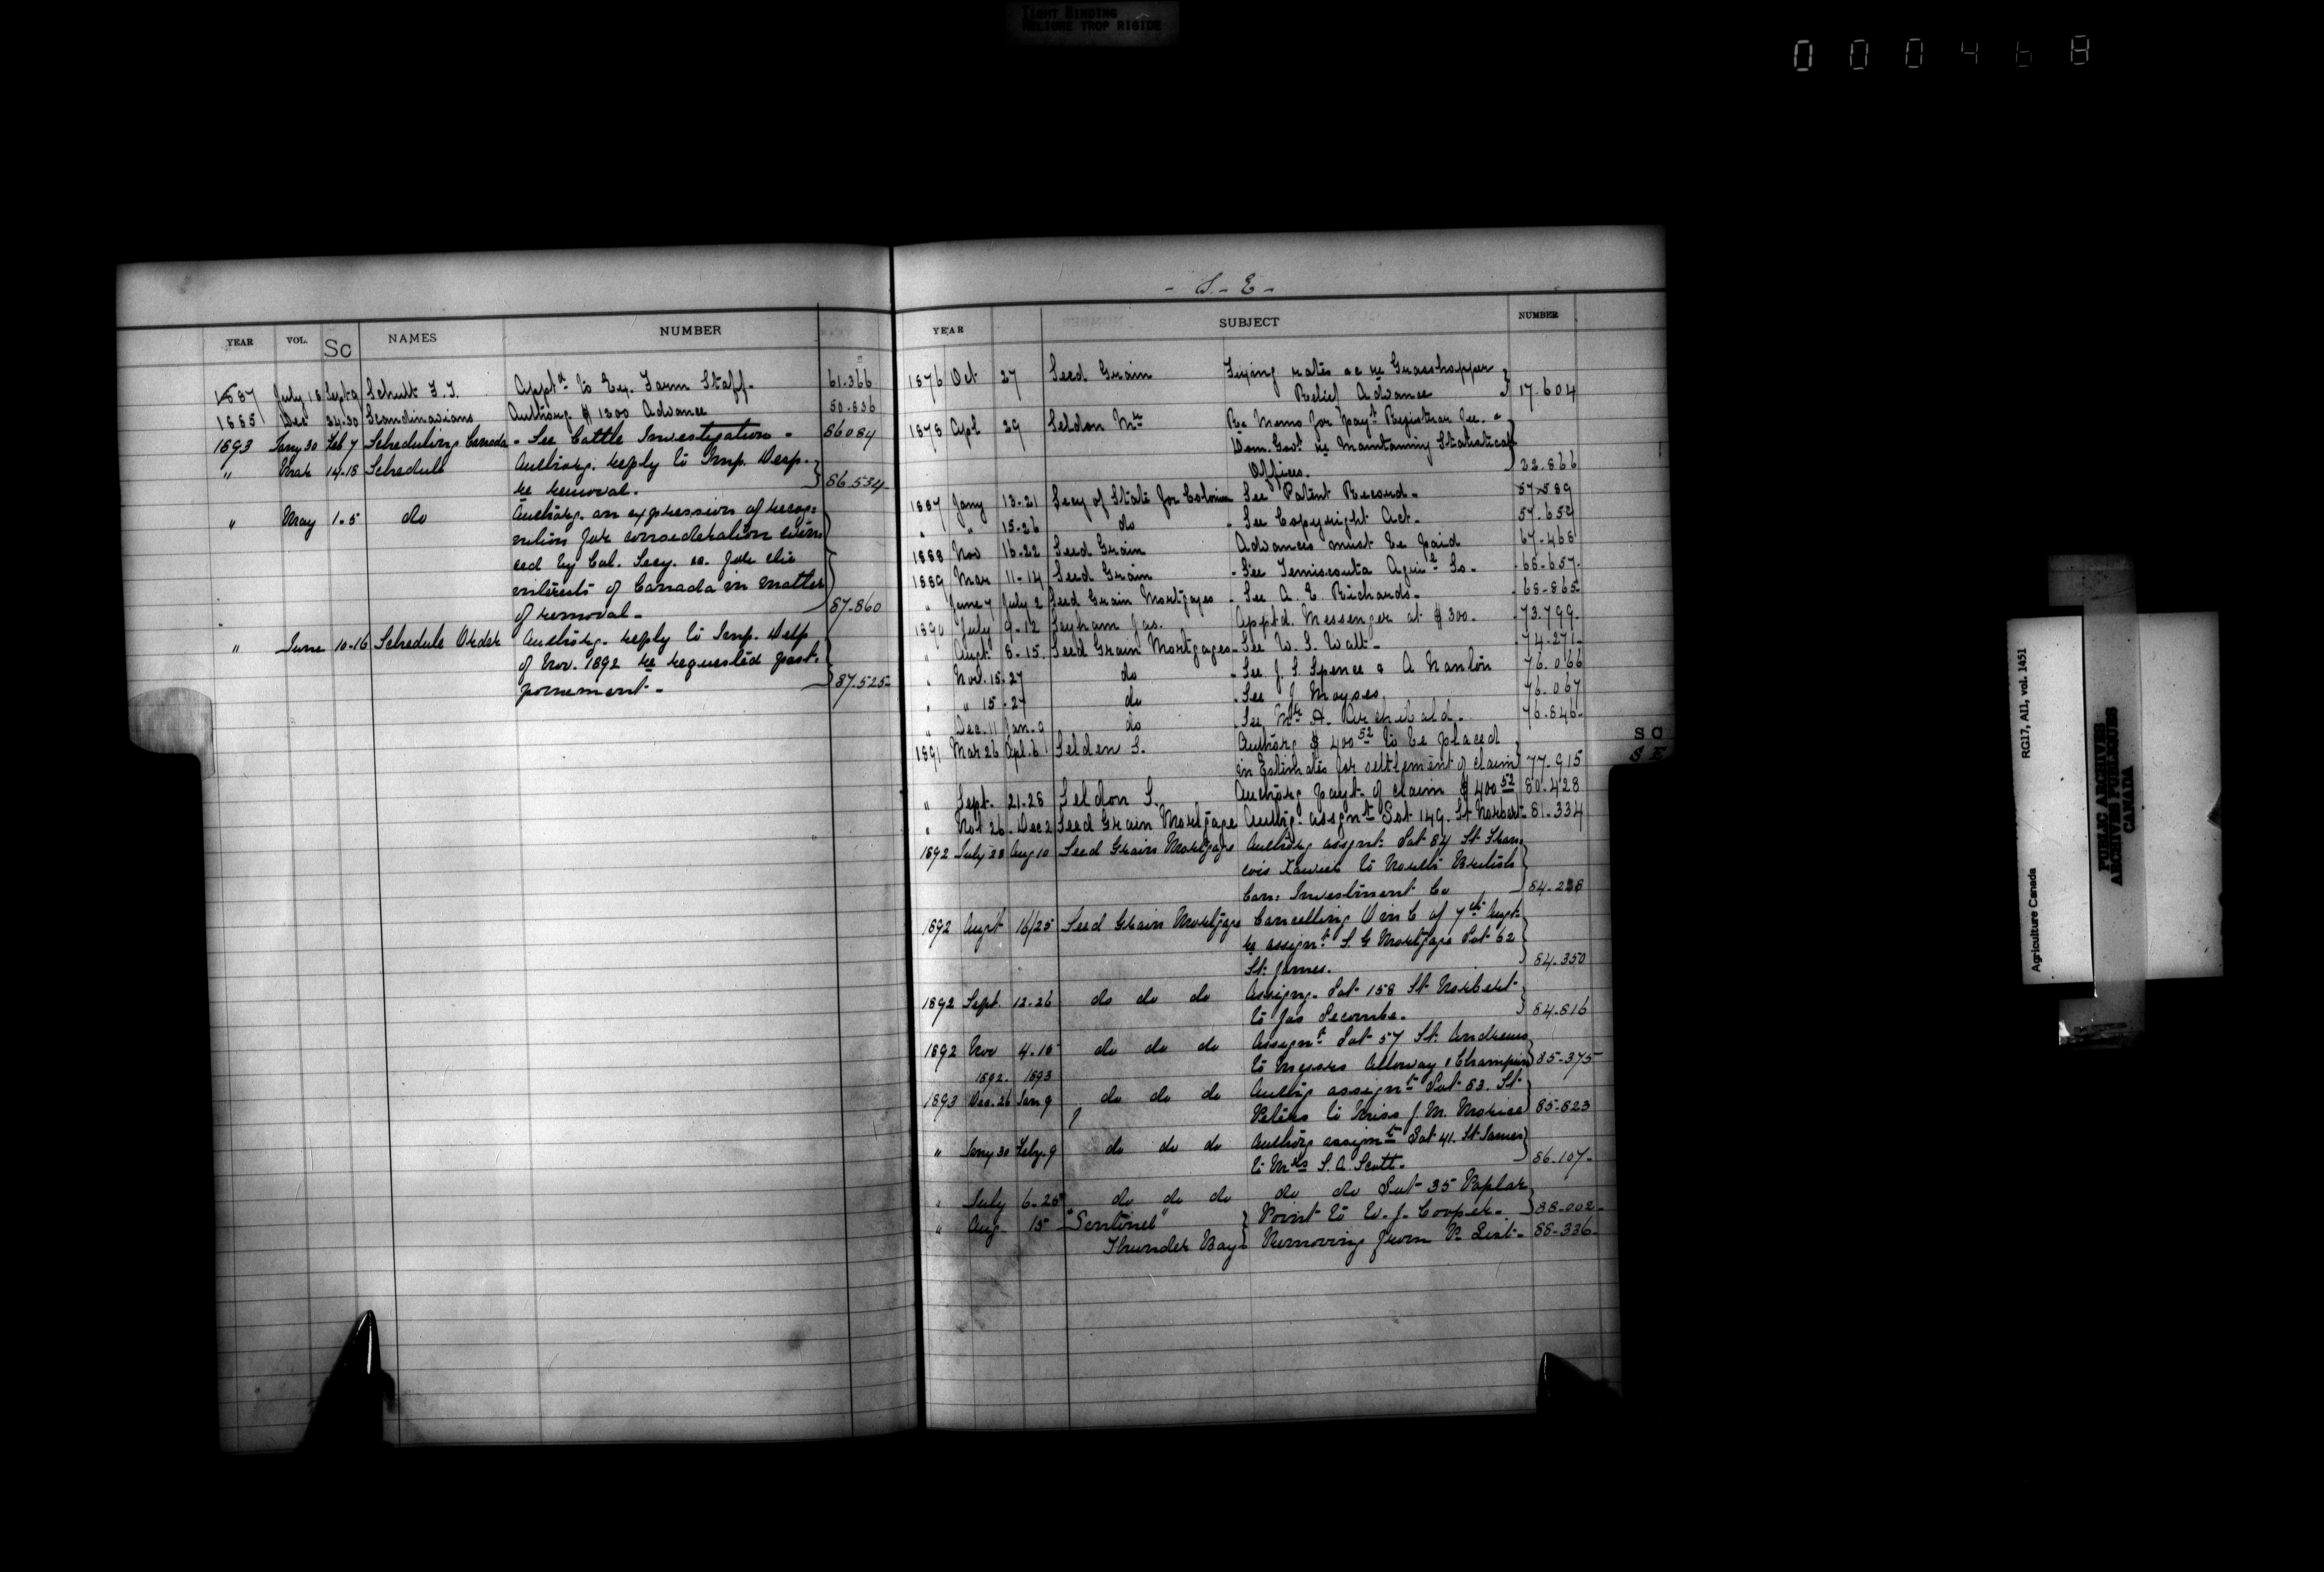 TIGHT BINDING
RELIURE TROP RIGIDE
000468
YEAR VOL. Sc NAMES NUMBER
1887 July 18 Sept 9 Schutt F. T. Apptt to Ex. Farm Staff. 61.366
1885 Dec 24.30 Scandinavians Authorg. $1200 Advance 50.836
1893 Jany 30 Feb 7 Scheduling Canada - See Cattle Investigation - 86084
" Mar 14.18 Schedule Authorg. reply to Imp. Desp.
re removal. 86.534
" May 1.5 do Authorg. an expression of recog-
nition for consideration evin
ced by Col. Secy. &c. for the
interests of Canada in matter
of removal - 87.860
" June 10-16 Schedule Order Authorg. reply to Imp. Desp
of Nov. 1892 re requested post-
ponement - 87.525
- S - E -
YEAR SUBJECT NUMBER
1876 Oct 27 Seed Grain Fixing rates &c re Grasshopper
Relief Advance 17.604
1878 Apl 29 Seldon Mr Re Memo for Payt Registrar Gen. &
Dom. Govt re Maintaining Statistical
Offices. 22.866
1887 Jany 13-21 Secy of State for Colonies See Patent Record - 57589
" " 15-26 do - See Copyright Act - 57.652
1888 Nov 16-22 Seed Grain Advances must be paid 67.468
1889 Mar 11-14 Seed Grain - See Temiscouta Agricl So - 68-657
" June 7 July 2 Seed Grain Mortgages - See A. E. Richards - 68-865
1890 July 9-12 Seyham Jas. Apptd. Messenger at $300. 73.799
" Augt 8-15 Seed Grain Mortgages - See W. S. Watt - 74.271
" Nov. 15.27 do - See J. S. Spence & A Nanton 76.066
" " 15-27 do - See J Moyses. 76.067
" Dec. 11 Jan. 9 do - See Mr A. Archibald. 76.846
1891 Mar 26 Apl. 6 Selden S. Authorg $400 52 to be placed
in Estimates for settlement of claim 77.915
" Sept. 21-28 Seldon S. Authorg payt. of claim $400 52 80.428
" Nov 26 Dec 2 Seed Grain Mortgage Authg. assgnt Lot 149. St Norbert 81.334
1892 July 28 Aug 10 Seed Grain Mortgage Authorg assgnt. Lot 84 St Fran
cois Xavier to North British
Can: Investment Co 84.238
1892 Augt 16/25 Seed Grain Mortgage Cancelling O in C of 7th Augt
re assignt S. G Mortgage Lot 62
St. James. 84.350
1892 Sept. 12.26 do do do Assigng. Lot 158 St Norbert
to Jas Secombe. 84.816
1892 Nov 4.15 do do do Assignt Lot 57 St. Andrews
to Messrs Alloway & Champion 85.375
1892. 1893
1893 Dec. 26 Jan 9 do do do Authg assignt Lot 83. St
Peters to Miss J. M. Morice 85.823
" Jany 30 Feby. 9 do do do Authorg assignt Lot 41. St James
to Mrs S. A. Scott. 86.107
" July 6-25 do do do do do Lot 35 Poplar
Point to W. J. Cooper. 88.002
" Aug 15 "Sentinel"
Thunder Bay Removing from P. List. 88-336
S C
S E
RG17, AII, vol. 1451
Agriculture Canada
PUBLIC ARCHIVES
ARCHIVES PUBLIQUES
CANADA